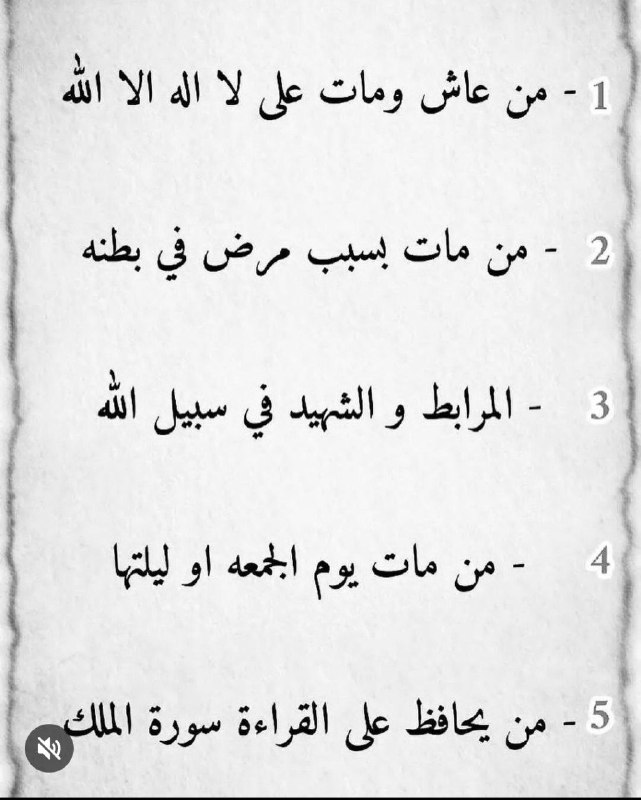 1 - من عاش ومات على لا اله الا الله
2 - من مات بسبب مرض في بطنه
3 - المرابط و الشهيد في سبيل الله
4 - من مات يوم الجمعه او ليلتها
5 - من يحافظ على القراءة سورة الملك